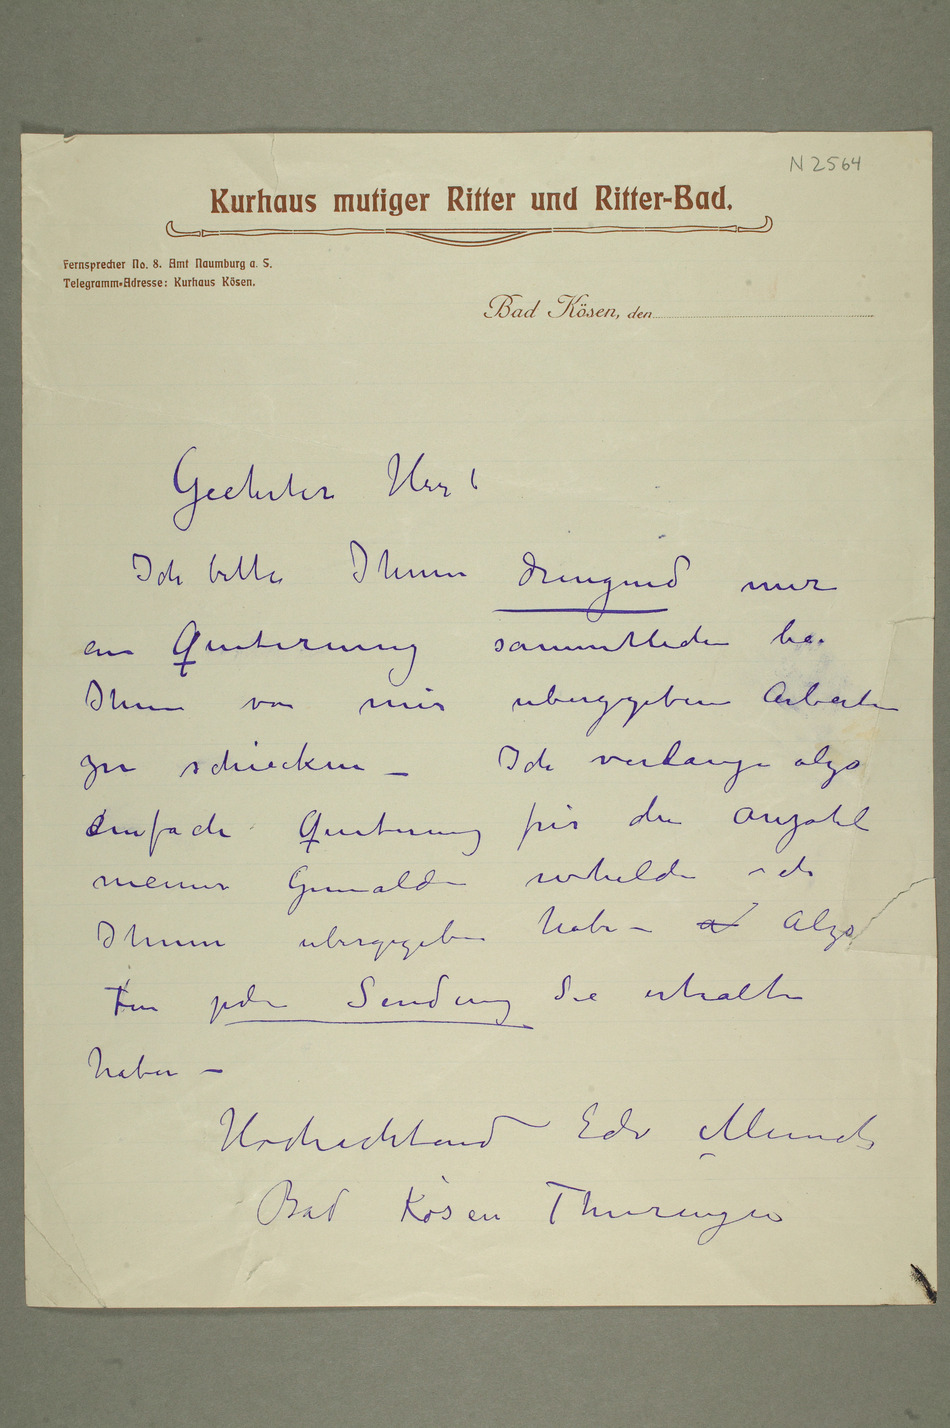 N 2564
Kurhaus mutiger Ritter und Ritter-Bad.
Fernsprecher No. 8. Amt Naumburg a. S.
Telegramm-Adresse: Kurhaus Kösen.
Bad Kösen, den
Geehrter Herr!
Ich bitte Ihnen dringend mir
ein Quitierung sammtlichen bei
Ihnen von mir ubergegebene Arbeiten
zu schiecken – Ich verlange alzo
einfach Quitierung für die Anzahl
meiner Gemalde welche ich
Ihnen ubergegeben habe – Alzo
Für jede Sendung Sie erhalten
haben –
Hochachtend Edv Munch
Bad Kösen Thuringen